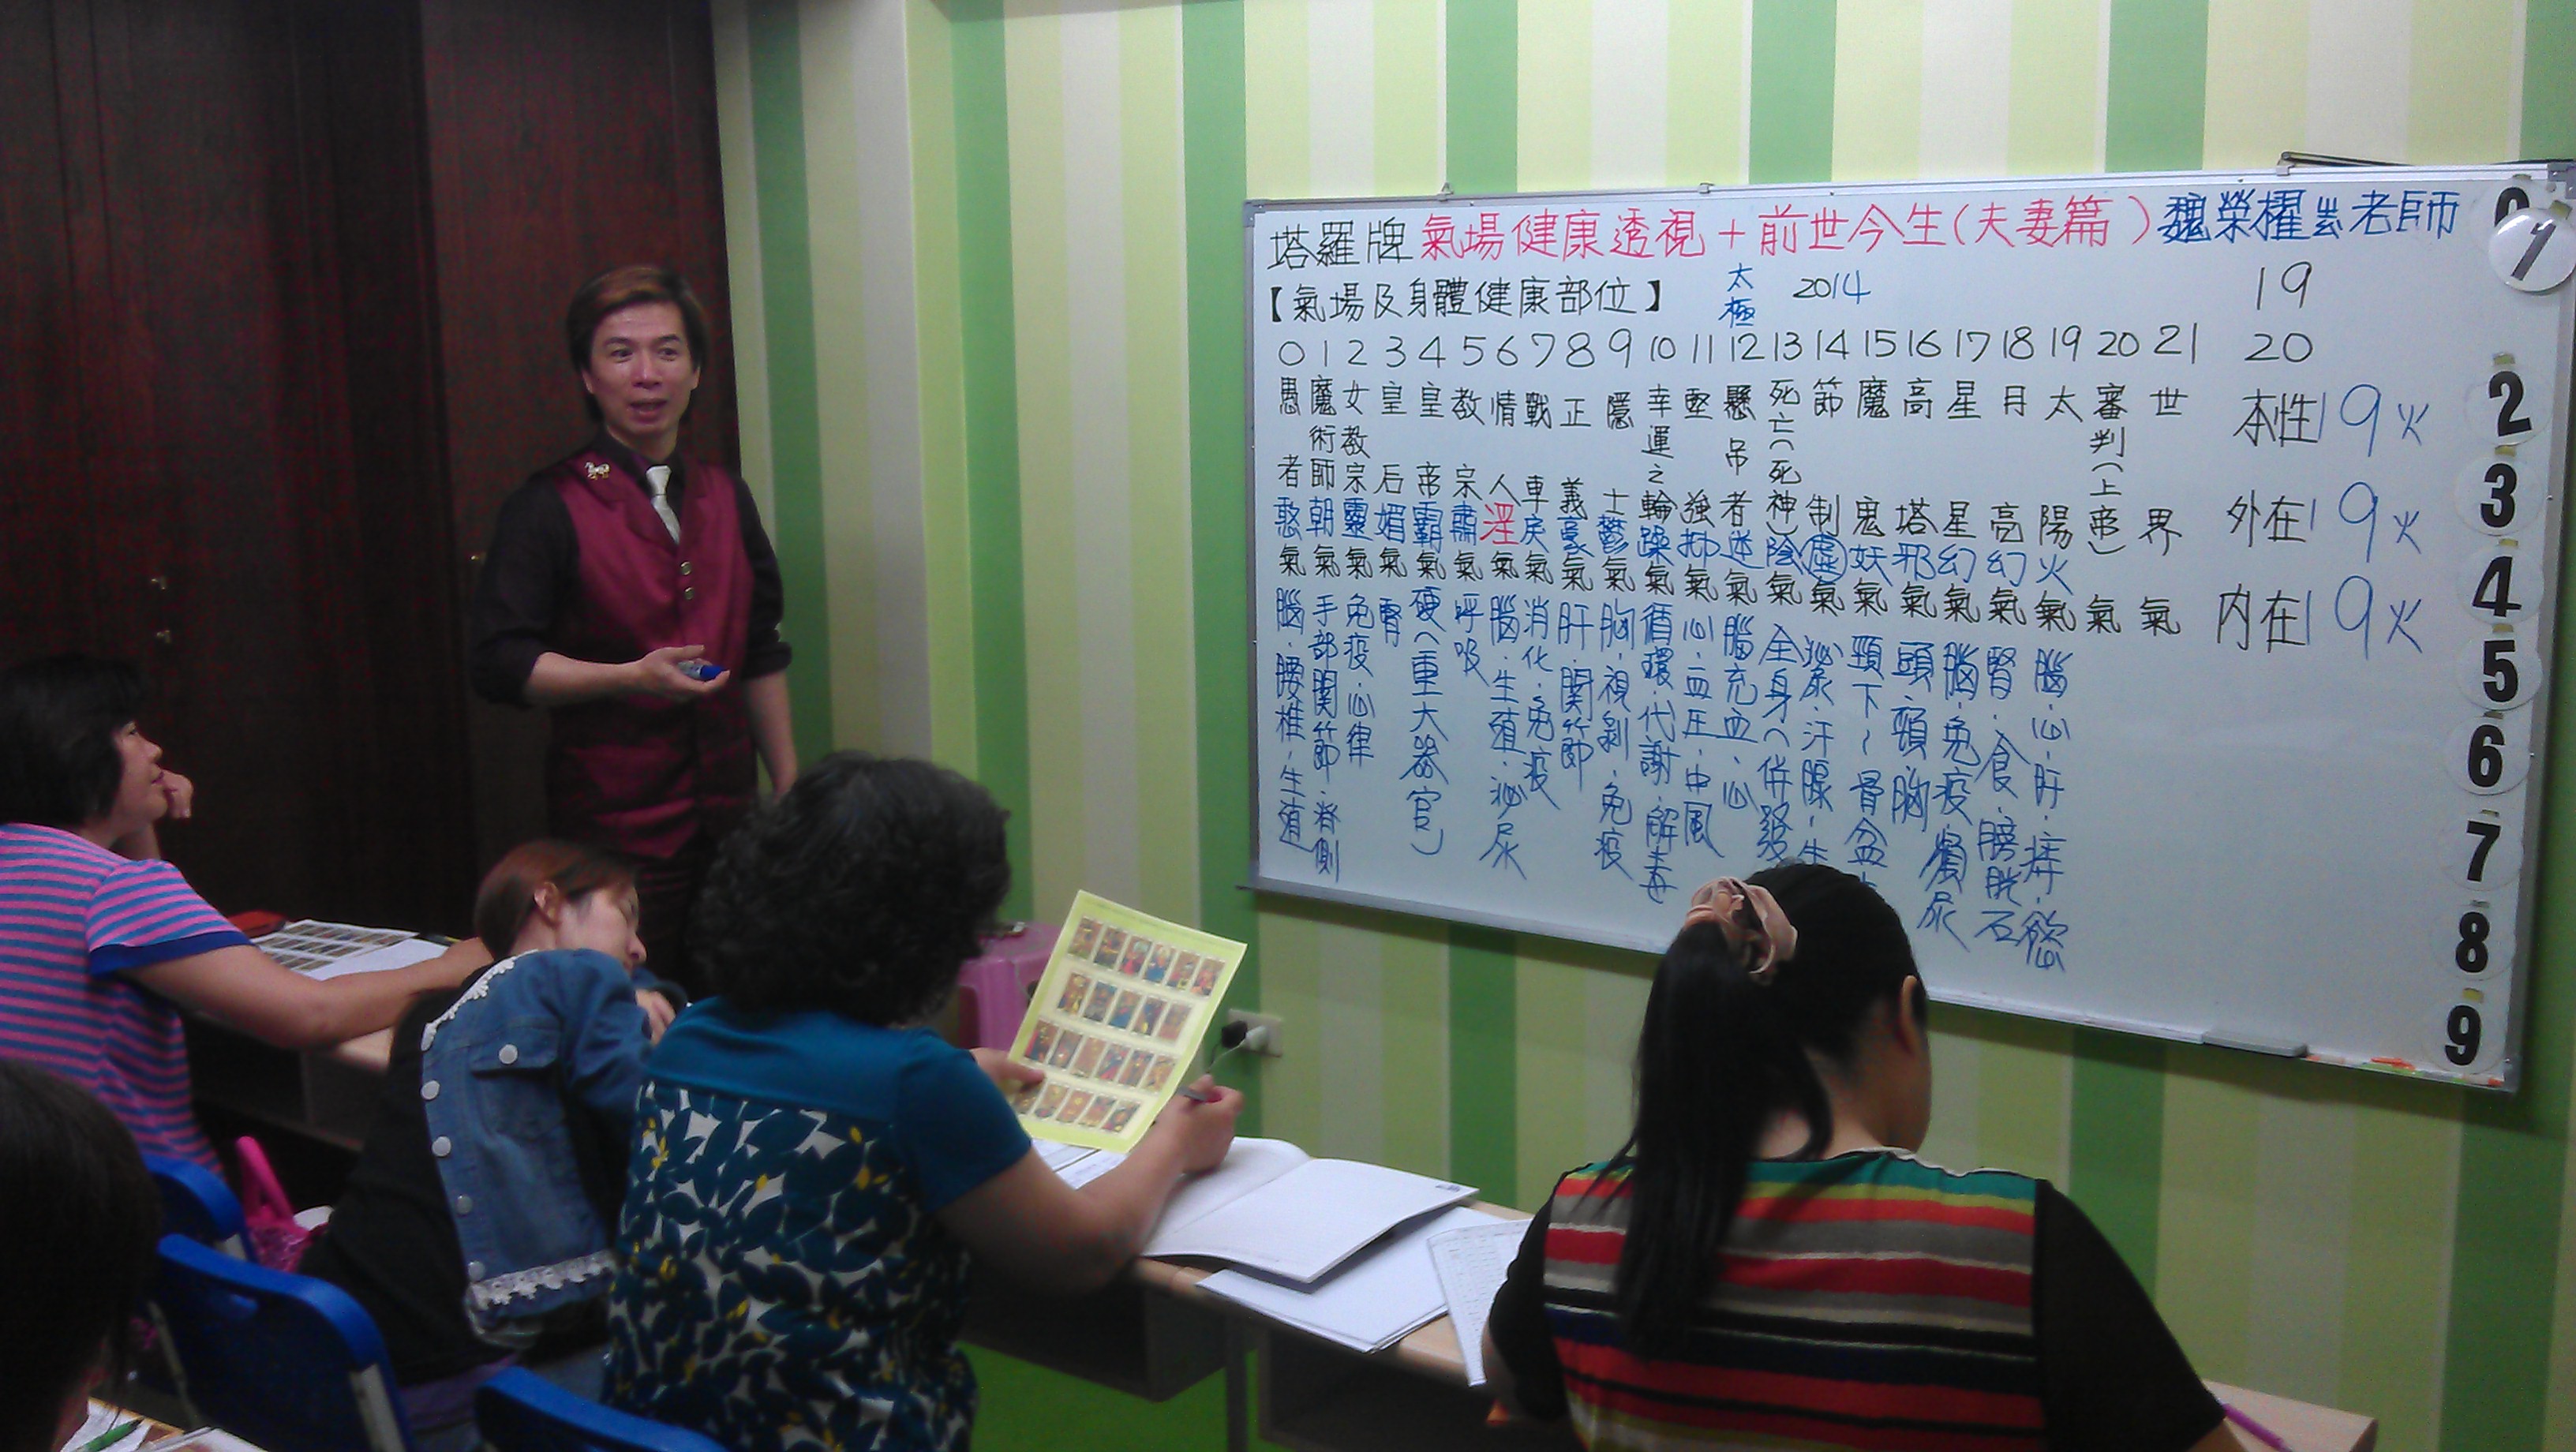 塔羅牌氣場健康透視+前世今生(夫妻篇)魏榮櫂老師
【氣場及身體健康部位】 太極 2014 19
0 1 2 3 4 5 6 7 8 9 10 11 12 13 14 15 16 17 18 19 20 21 20
愚者憨氣腦.腰椎.生殖
魔術師朝氣手部関節.脊側
女教宗靈氣免疫.心律
皇后媚氣腎
皇帝霸氣硬(重大器官)
教宗肅氣呼吸
情人淫氣腦.生殖.泌尿
戰車戾氣消化.免疫
正義豪氣肝.関節
隱士鬱氣胸.視.免疫
幸運之輪躁氣循環.代謝.解毒
強氣心.血圧.中風
懸吊者逆氣腦充血.心
死亡(死神)陰氣全身(併發
節制虛氣泌尿.汗腺.生
魔鬼妖氣頸下~骨盆
高塔邪氣頭.頸.胸
星星幻氣腦.免疫.
月亮幻氣腎.食.膀胱.石
太陽火氣腦.心.肝.
審判(上帝)氣
世界氣
本性19火
外在19火
内在19火
1
2
3
4
5
6
7
8
9